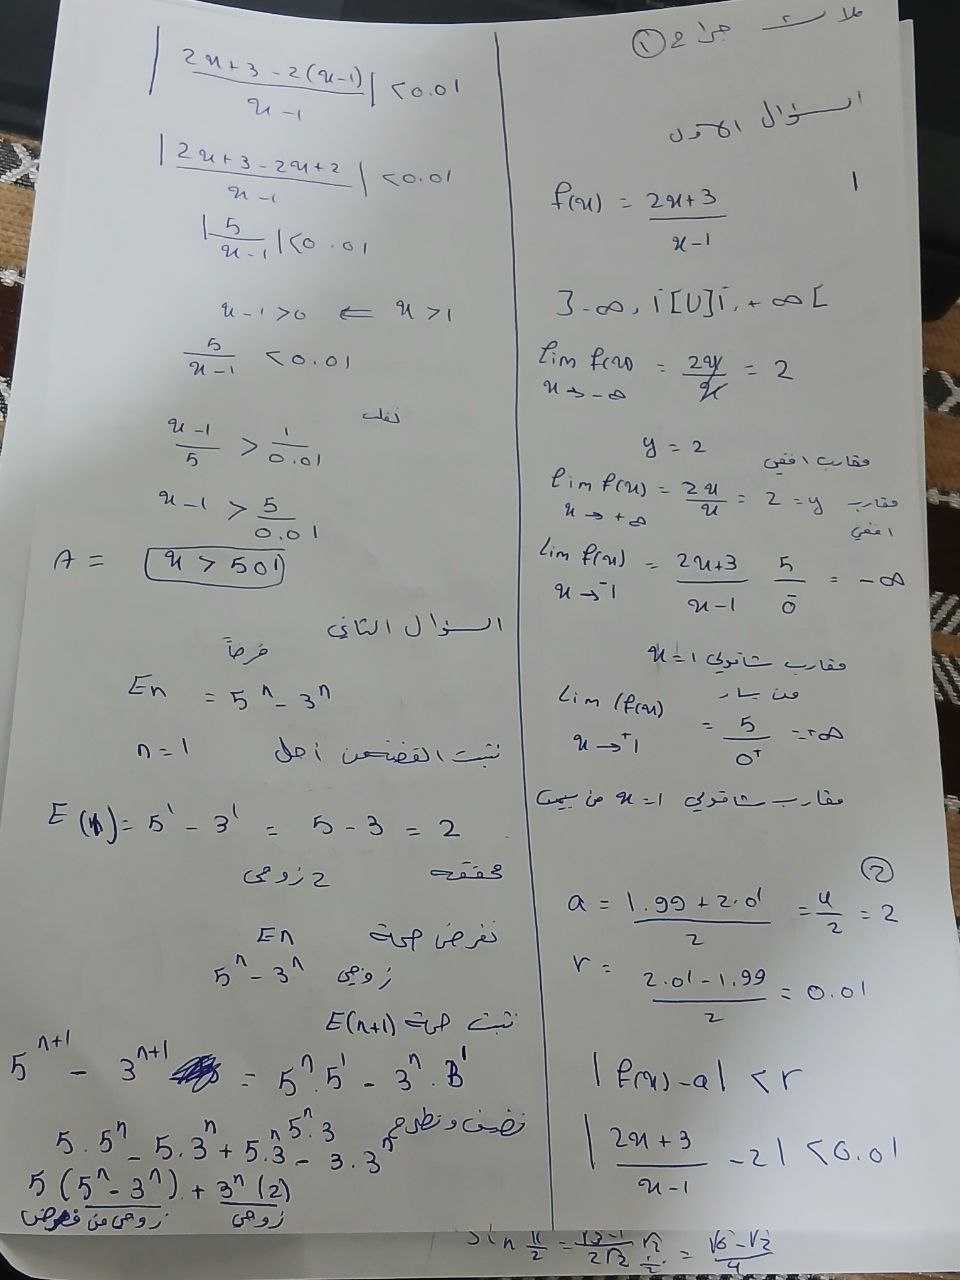 2 ①
السؤال الاول
1
f(x) = (2x+3)/(x-1)
]-∞, 1[ U ]1, +∞[
lim f(x) x→-∞ = 2x/x = 2
y = 2 مقارب افقي
lim f(x) x→+∞ = 2x/x = 2 = y مقارب افقي
lim f(x) x→⁻1 = (2x+3)/(x-1) 5/0⁻ = -∞
مقارب شاقولي x=1
من يسار
lim (f(x) x→⁺1 = 5/0⁺ = +∞
مقارب شاقولي x=1 من يمين
②
a = (1.99 + 2.01)/2 = 4/2 = 2
r = (2.01 - 1.99)/2 = 0.01
|f(x) - a| < r
|(2x+3)/(x-1) - 2| < 0.01
|(2x+3-2(x-1))/(x-1)| < 0.01
|(2x+3-2x+2)/(x-1)| < 0.01
|5/(x-1)| < 0.01
x-1>0 ⇐ x>1
5/(x-1) < 0.01
نقلب
(x-1)/5 > 1/0.01
x-1 > 5/0.01
A = x > 501
السؤال الثاني
En = 5ⁿ - 3ⁿ
نثبت القضية من أجل n=1
E(1) = 5¹ - 3¹ = 5 - 3 = 2
محققة 2 زوجي
نفرض صحة En
5ⁿ - 3ⁿ زوجي
نثبت صحة E(n+1)
5ⁿ⁺¹ - 3ⁿ⁺¹ = 5ⁿ.5¹ - 3ⁿ.3¹
نضيف ونطرح 5ⁿ.3
5.5ⁿ - 5.3ⁿ + 5.3ⁿ - 3.3ⁿ
5(5ⁿ - 3ⁿ) + 3ⁿ(2)
زوجي من فرض زوجي